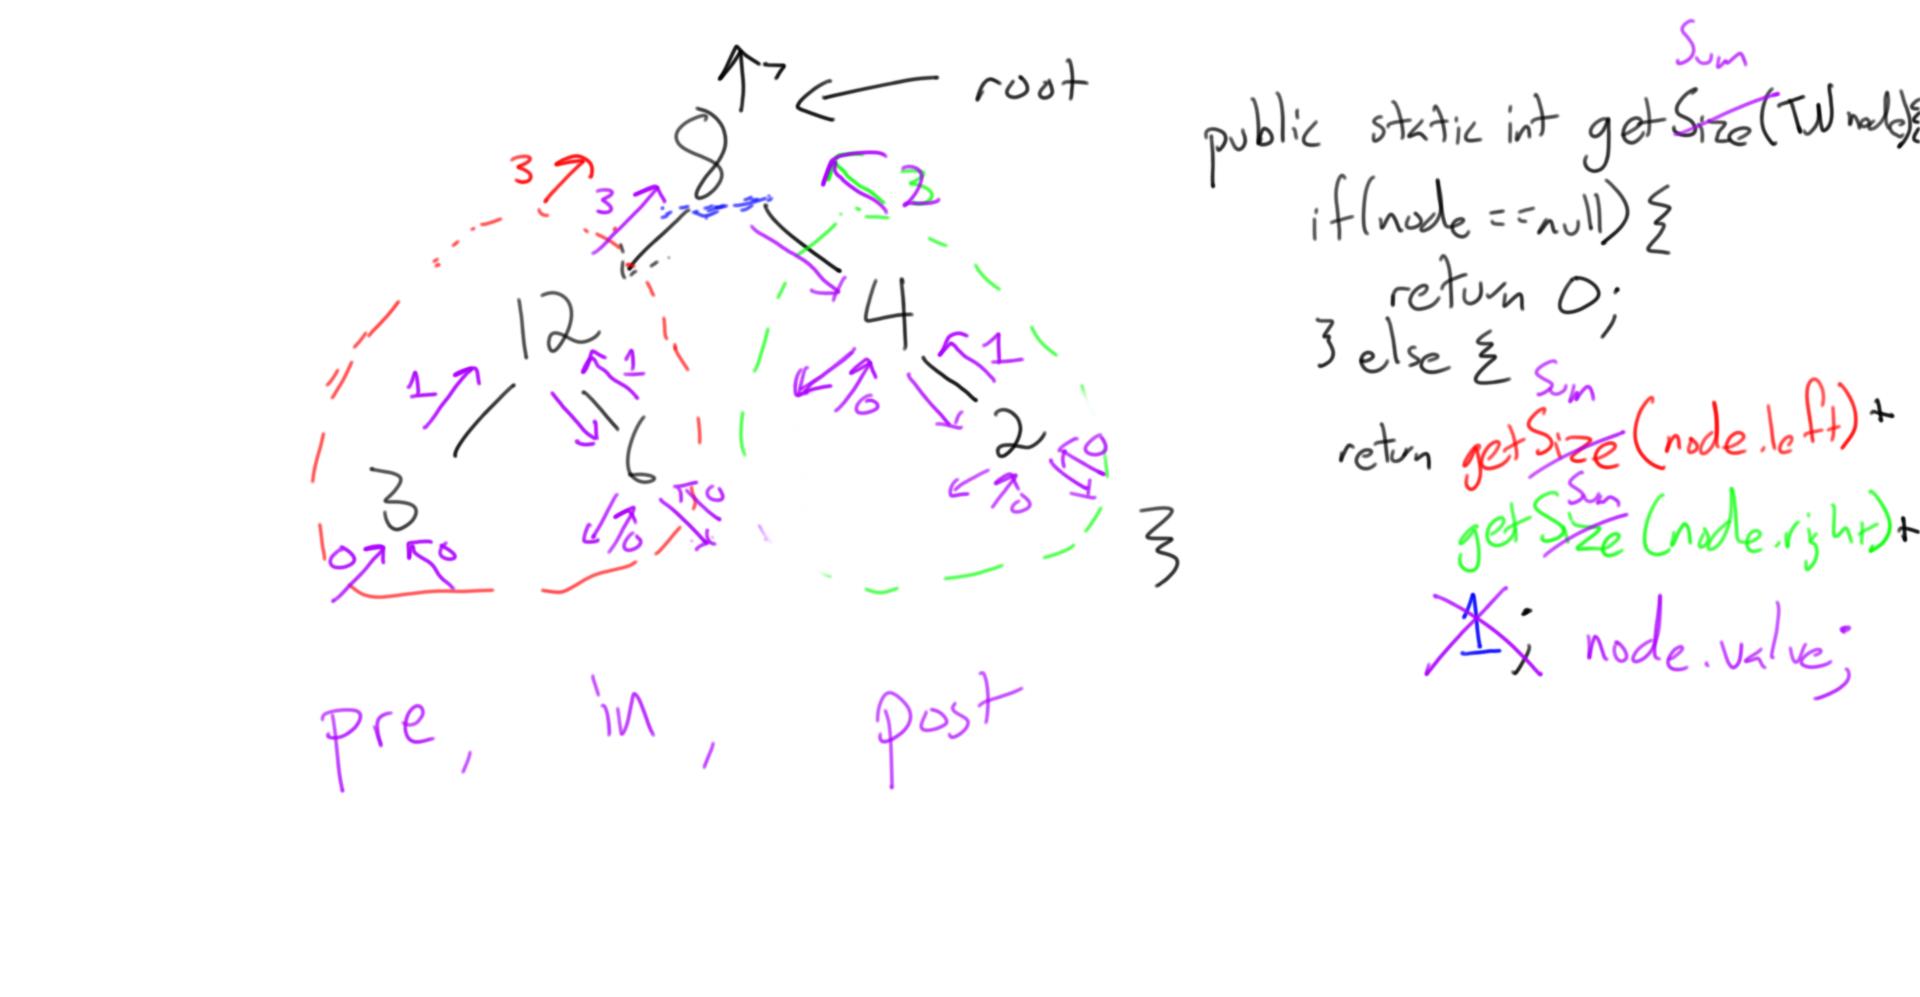 root
8
3
3
2
12
4
1
1
0
1
3
6
2
0
0
0
0
0
0
pre, in, post
Sum
public static int getSize(TN node){
if(node == null) {
return 0;
} else {
Sum
return getSize(node.left) +
Sum
getSize(node.right) +
1; node.value;
}